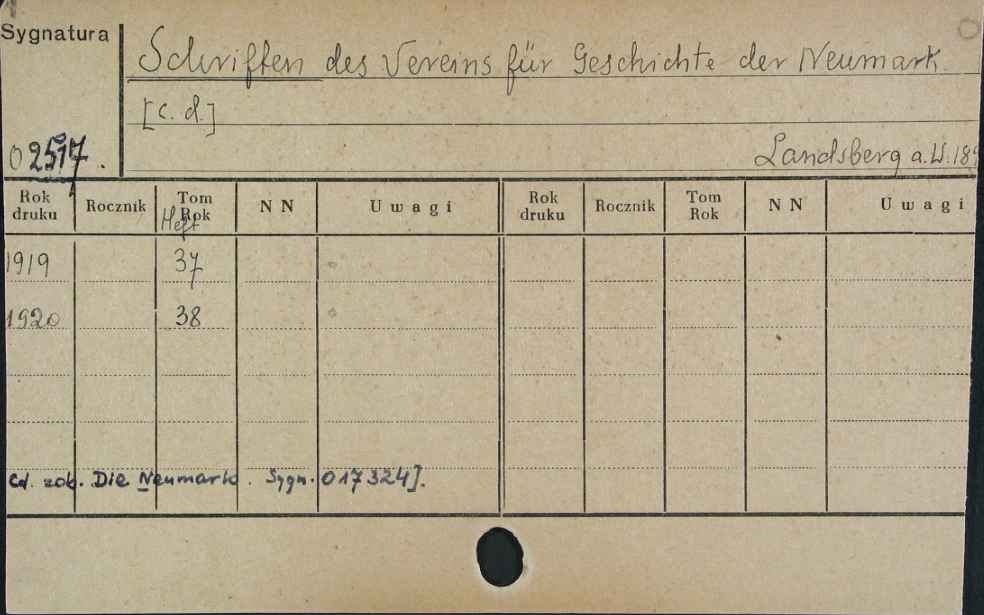 Sygnatura
Schriften des Vereins für Geschichte der Neumark
[c. d.]
02517.
Landsberg a. W. 189
Rok druku Rocznik Tom Rok N N Uwagi Rok druku Rocznik Tom Rok N N Uwagi
Heft
1919 37
1920 38
Cd. zob. Die Neumark. Sygn. 017324].